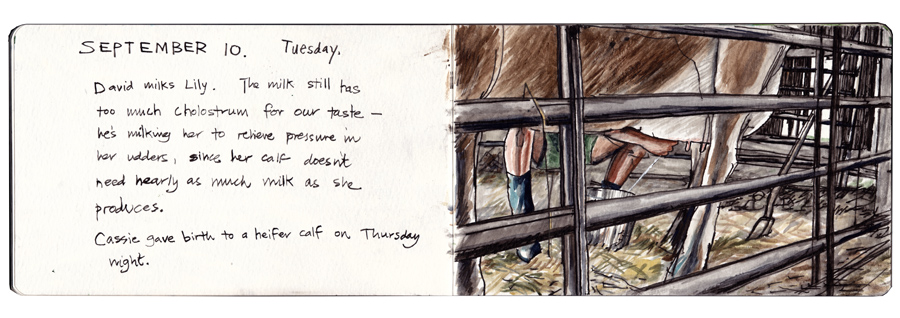 SEPTEMBER 10. Tuesday.
David milks Lily. The milk still has
too much cholostrum for our taste —
he's milking her to relieve pressure in
her udders, since her calf doesn't
need nearly as much milk as she
produces.
Cassie gave birth to a heifer calf on Thursday
night.